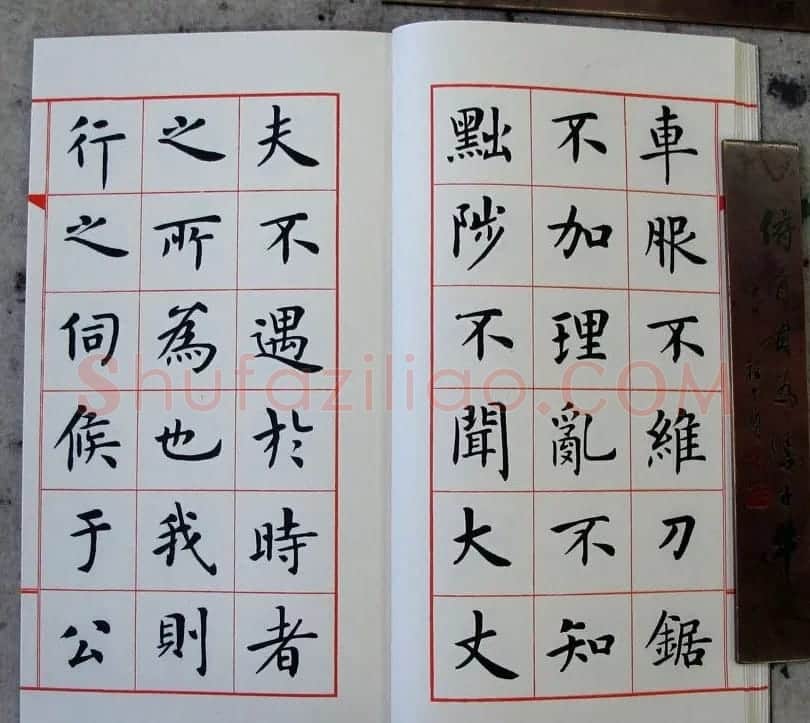 車服不維刀鋸
不加理亂不知
黜陟不聞大丈
夫不遇於時者
之所為也我則
行之伺候于公
Shufaziliao.COM